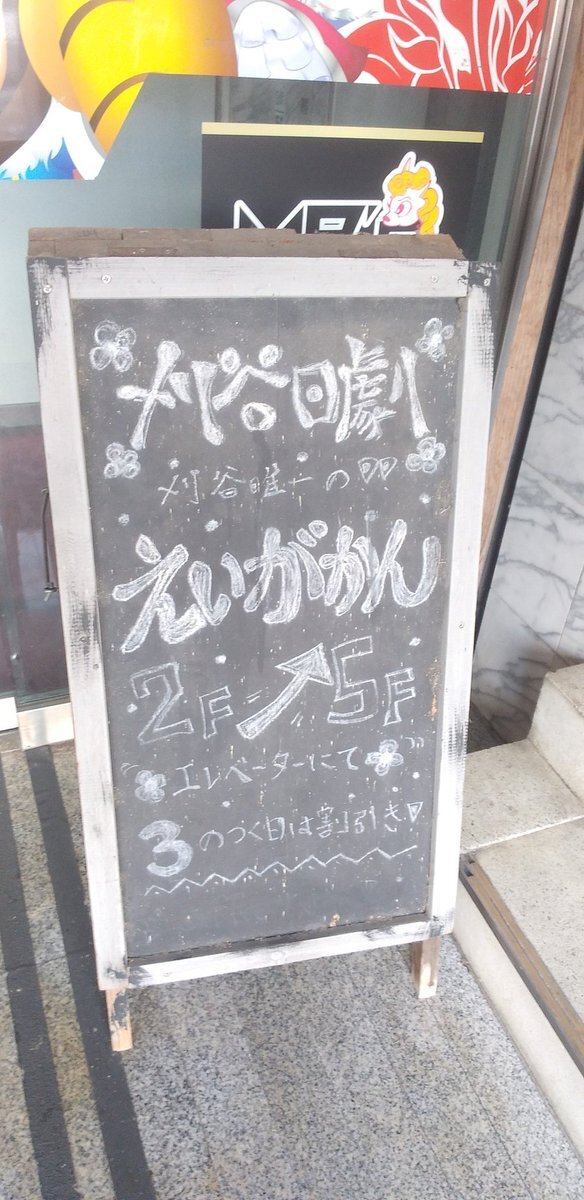 刈谷日劇
刈谷唯一の♡♡
えいがかん
2F↗5F
エレベーターにて
3のつく日は割引き!